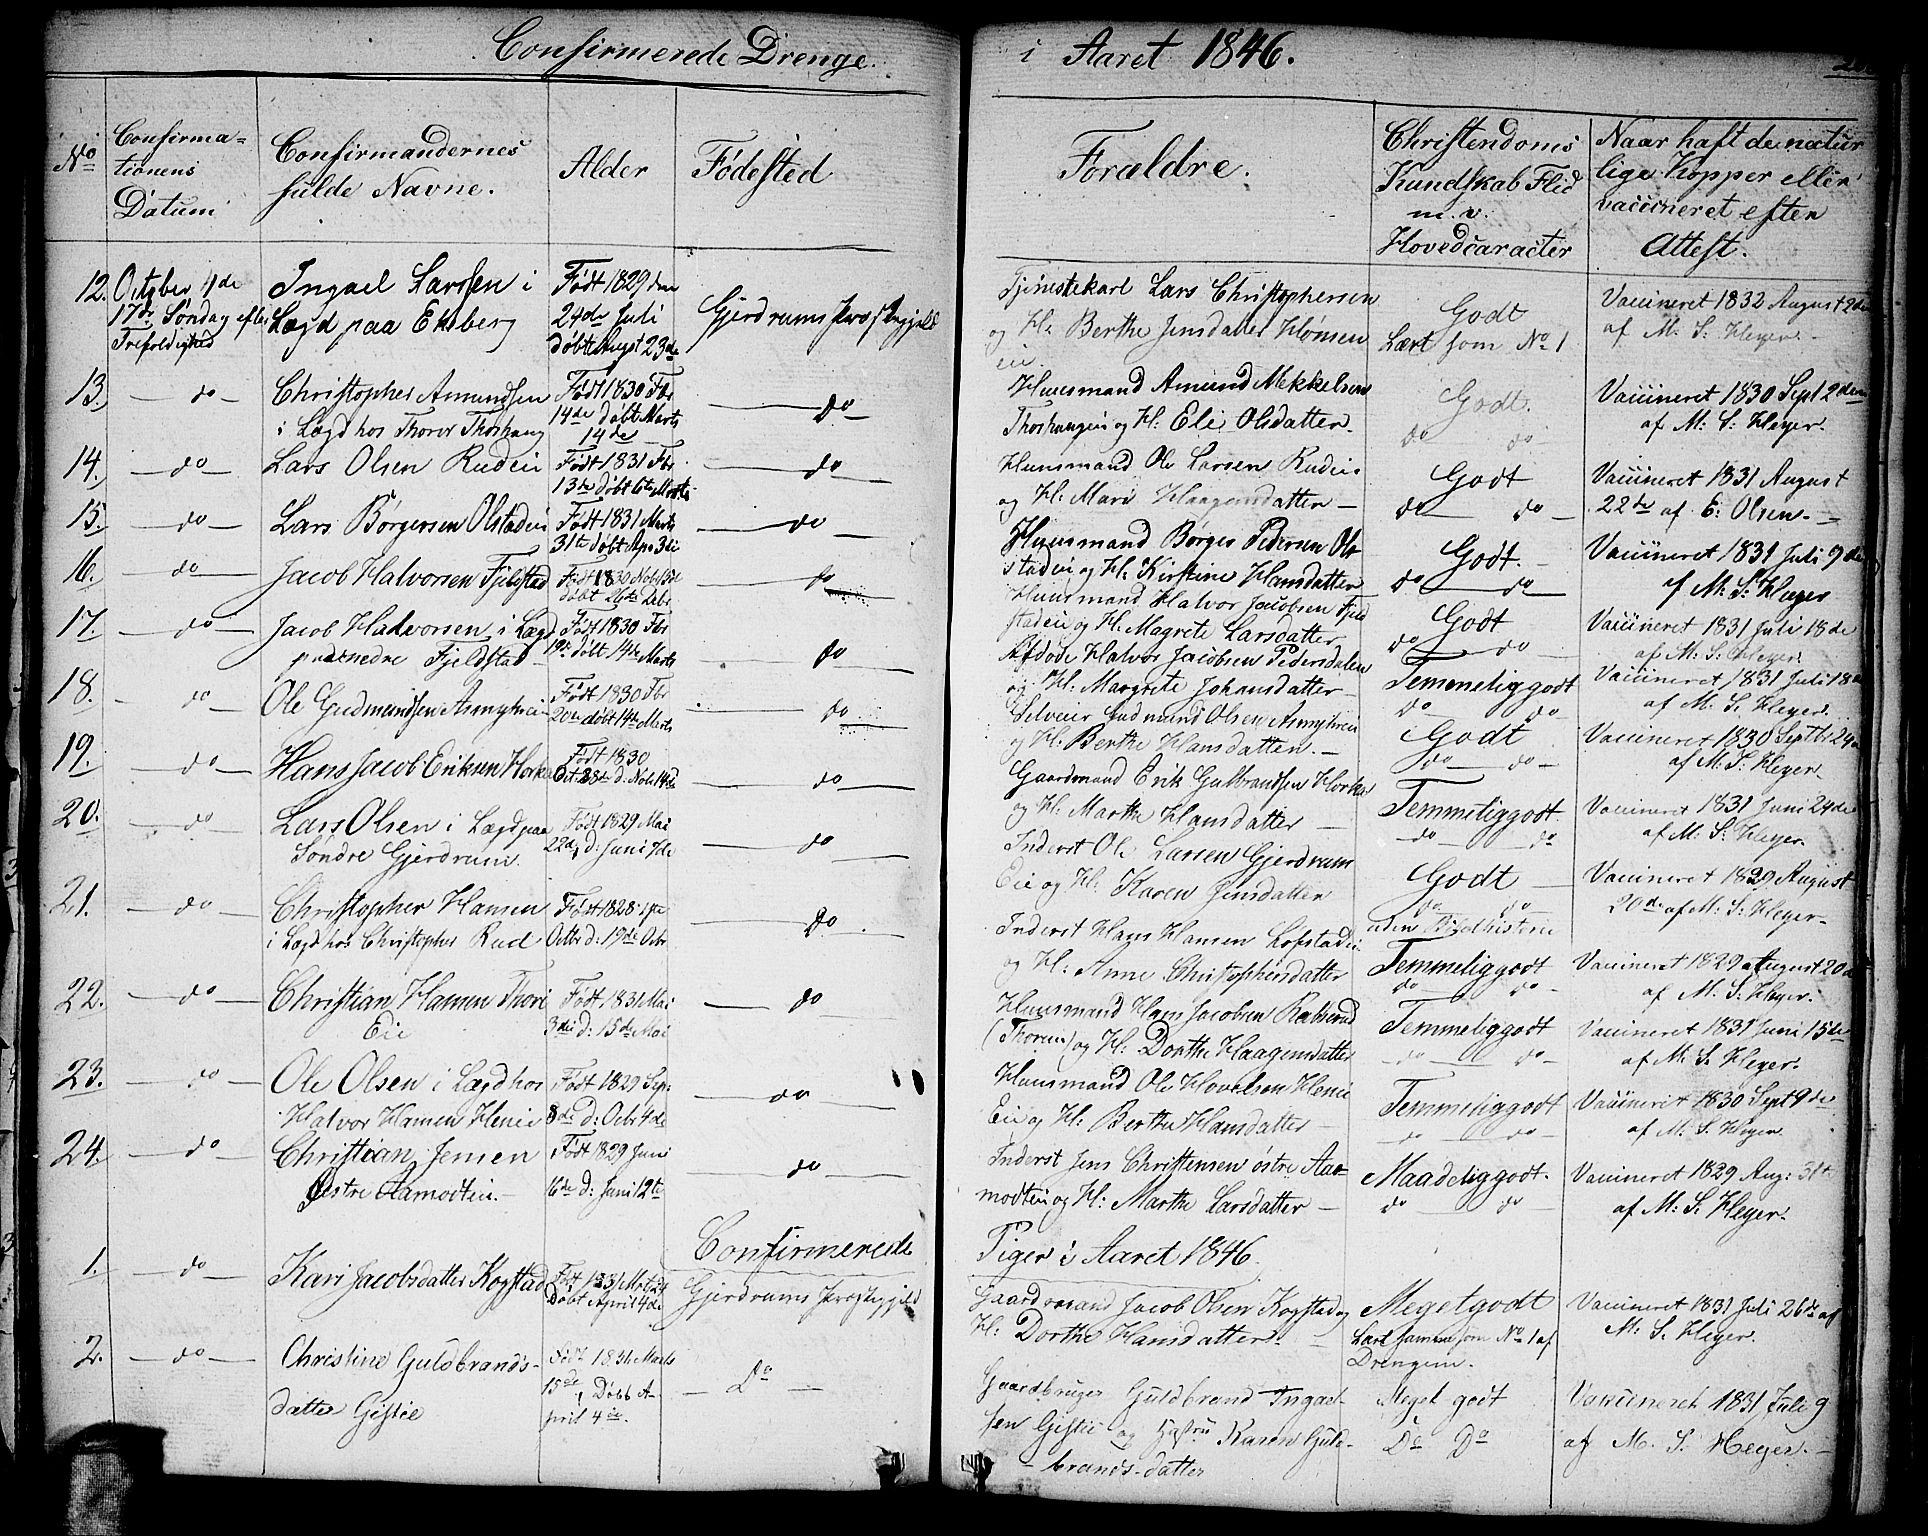 Confirmerede Drenge
i Aaret 1846.
No
Confirma-
tionens
Datum
Confirmandernes
fulde Navne.
Alder
Fødested
Forældre.
Christendoms
Kundskab Flid
m. v.
Hovedcaracter
Naar haft de natur
lige Kopper eller
vaccineret efter
Attest.
12. October 4de
17de Søndag efter
Trefoldighed
Ingael Larssen i
Lægd paa Ekeberg
Født 1829 den
24de Juli
døbt Augst 23de
Gjerdrums Præstegjeld
Tjenestekarl Lars Christophersen
og H: Berthe Jensdatter Hønsen
eie
Godt
Lært som No 1
Vaccineret 1832 August 2de
af M. S. Heyer.
13. do
Christopher Amundsen
i Lægd hos Thorer Thoshaug
Født 1830 Fbr
14de døbt Marts
14de
do
Huusmand Amund Mekkelsen
Thoshaugein og H: Eli Olsdatter.
Godt.
do do
Vaccineret 1830 Sept 2den
af M: S. Heyer.
14. do
Lars Olsen Rudei
Født 1831 Fbr
13de døbt 6te Marts
do
Huusmand Ole Larsen Rudei
og H: Mari Haagensdatter
Godt
do do
Vaccineret 1831 August
22de af E: Olsen.
15. do
Lars Børgersen Olstadei
Født 1831 Marts
31te døbt Apr 3di
do
Huusmand Børger Pedersen Ol-
stadei og H: Kirstine Hansdatter
Godt.
do do
Vaccineret 1831 Juli 9de
af M: S: Heyer
16. do
Jacob Halvorsen Fjeldstad
Født 1830
døbt 26te Debr
do
Huusmand Halvor Jacobsen Fjeld
stadei og H: Magrete Larsdatter
Godt
do do
Vaccineret 1831 Juli 18de
af M: S: Heyer.
17. do
Jacob Halvorsen i Lægd
paa nedre Fjeldstad
Født 1830 Fbr
19de døbt 14de Marts
do
Afdøde Halvor Jacobsen Pedersdalen
og H: Margrete Johansdatter
Temmelig godt
do do
Vaccineret 1831 Juli 18de
af M: S. Heyer.
18. do
Ole Gudmundsen Asmyhrei
Født 1830 Fbr
20de døbt 14de Marts
do
Selveier Gudmund Olsen Asmyhrei
og H: Berthe Hansdatter.
Godt
do do
Vaccineret 1830 Septbr 24de
af M: S: Heyer.
19. do
Hans Jacob Eriksen Horka
Født 1830
Oct. 28de d: Nobr 14de
do
Gaardmand Erik Gulbrandsen Horka
og H: Marthe Hansdatter
Temmelig godt
do do
Vaccineret 1831 Juni 24de
af M: S: Heyer.
20. do
Lars Olsen i Lægd paa
Søndre Gjerdrum
Født 1829 Mai
22de d: Juni 7de
do
Inderst Ole Larsen Gjerdrum
Eie og H: Karen Jensdatter
Godt
do do
uden Bibelhistorie
Vaccineret 1829 August
20de af M: S: Heyer.
21. do
Christopher Hansen
i Lægd hos Christopher Rud
Født 1828 1ste
Octbr d: 19de Ocbr
do
Inderst Hans Hansen Lofstadei
og H: Anne Christophersdatter
Temmelig godt
do do
Vaccineret 1829 August 20de
af M: S. Heyer.
22. do
Christian Hansen Thori
Eie
Født 1831 Mai
3di d: 15de Mai
do
Huusmand Hans Jacobsen
(Thorein) og H: Dorthe Haagensdatter
Temmelig godt
do do
Vaccineret 1831 Juni 15de
af M. S. Heyer.
23. do
Ole Olsen i Lægd hos
Halvor Hansen Henie
Født 1829 Sep:
8de d: Ocbr 4de
do
Huusmand Ole Hovelsen Henie
Eie og H: Berthe Hansdatter
Temmelig godt
do do
Vaccineret 1830 Sept 9de
af M: S. Heyer.
24. do
Christian Jensen
Østre Aamodtei
Født 1829 Juni
16de d: Juni 12te
do
Inderst Jens Christensen østre Aa-
modtei og H: Marthe Larsdatter
Maadelig godt.
do do
Vaccineret 1829 Aug: 31te
af M: S. Heyer.
Confirmerede
Piger i Aaret 1846.
1. do
Kari Jacobsdatter Kogstad
Født 1831 Mrt 24
Døbt April 4de
Gjerdrums Præstegjeld
Gaardmand Jacob Olsen Kogstad og
H: Dorthe Hansdatter
Meget godt
Lært samme som No 1 af
Drengene.
Vaccineret 1831 Juli 26de af
M: S. Heyer.
2. do
Christine Guldbrands-
datter Gistie
Født 1831 Marts
15de, Døbt A-
pril 4de.
Do
Gaardbruger Guldbrand Ingael-
sen Gistie og Hustru Karen Guld-
brands-datter
Meget godt
Do Do
Vaccineret 1831 Juli 9
af M. S. Heyer.